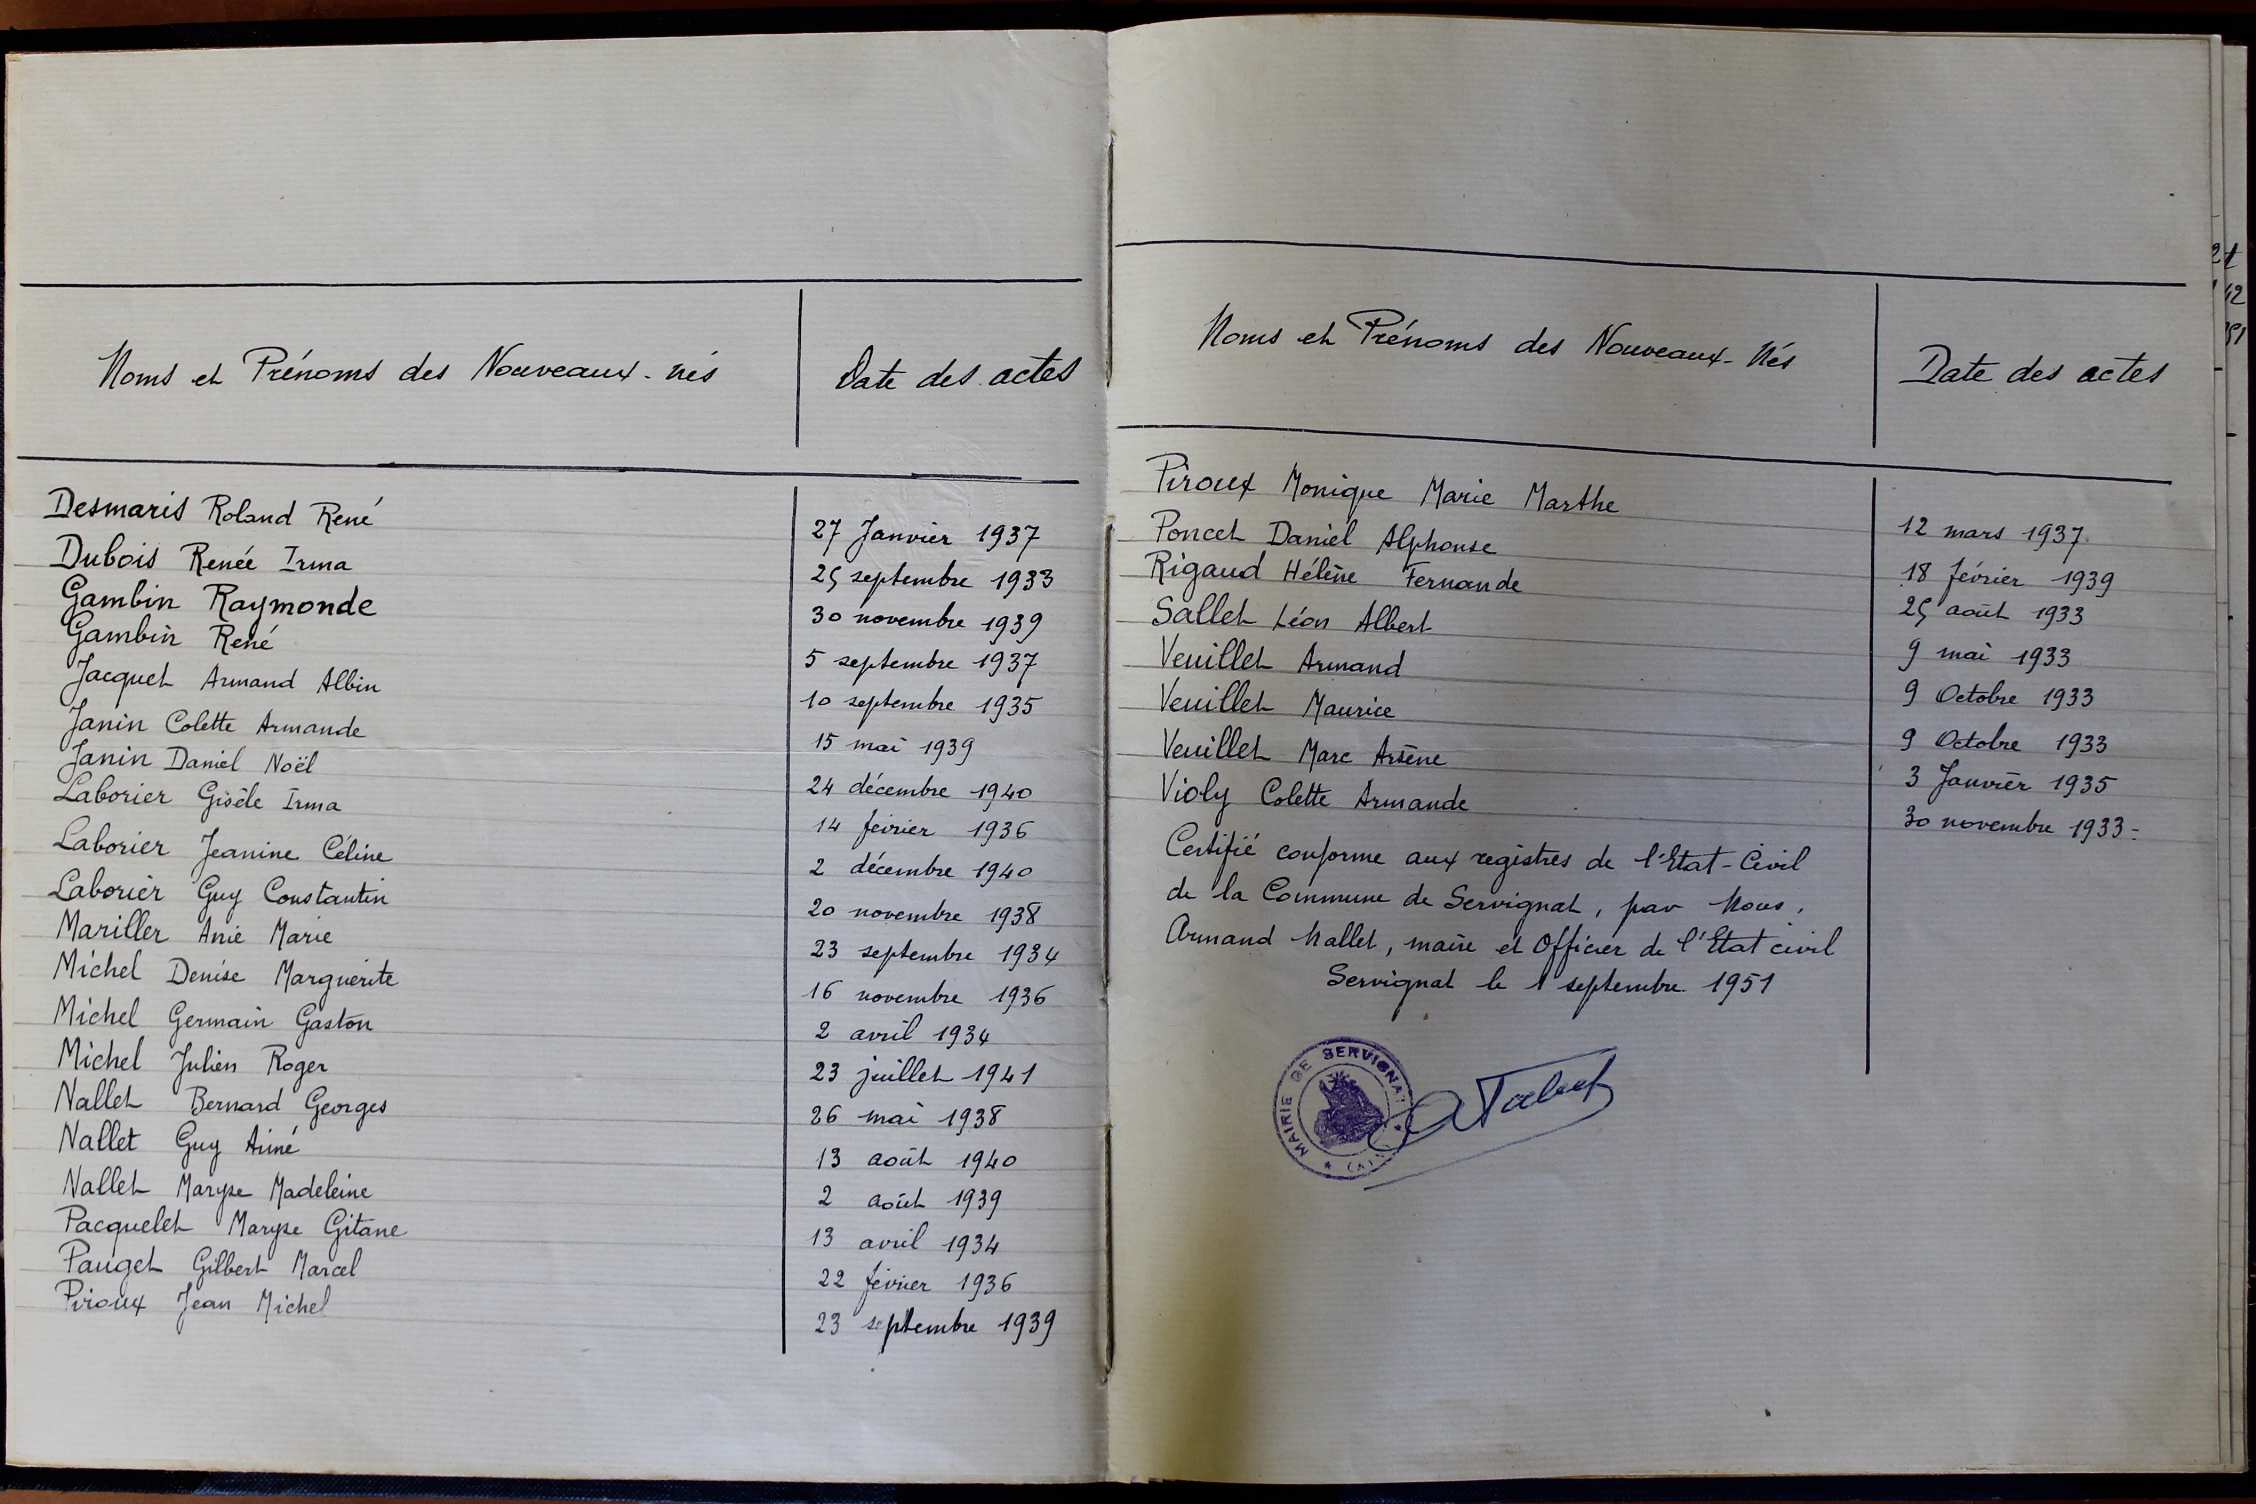 Noms et Prénoms des Nouveaux-nés Date des actes
Desmaris Roland René 27 Janvier 1937
Dubois Renée Irma 25 septembre 1933
Gambin Raymonde 30 novembre 1939
Gambin René 5 septembre 1937
Jacquet Armand Albin 10 septembre 1935
Janin Colette Armande 15 mai 1939
Janin Daniel Noël 24 décembre 1940
Laborier Gisèle Irma 14 février 1936
Laborier Jeanine Céline 2 décembre 1940
Laborier Guy Constantin 20 novembre 1938
Mariller Anie Marie 23 septembre 1934
Michel Denise Marguerite 16 novembre 1936
Michel Germain Gaston 2 avril 1934
Michel Julien Roger 23 juillet 1941
Nallet Bernard Georges 26 mai 1938
Nallet Guy Aimé 13 août 1940
Nallet Maryse Madeleine 2 août 1939
Pacquelet Maryse Gitane 13 avril 1934
Pauget Gilbert Marcel 22 février 1936
Piroux Jean Michel 23 septembre 1939
Noms et Prénoms des Nouveaux-Nés Date des actes
Piroux Monique Marie Marthe 12 mars 1937
Poncet Daniel Alphonse 18 février 1939
Rigaud Hélène Fernande 25 août 1933
Sallet Léon Albert 9 mai 1933
Veuillet Armand 9 Octobre 1933
Veuillet Maurice 9 Octobre 1933
Veuillet Marc Arsène 3 Janvier 1935
Violy Colette Armande 30 novembre 1933-
Certifié conforme aux registres de l'Etat-Civil
de la Commune de Servignat, par Nous,
Armand Nallet, maire et Officier de l'Etat civil
Servignat le 1 septembre 1951
MAIRIE DE SERVIGNAT